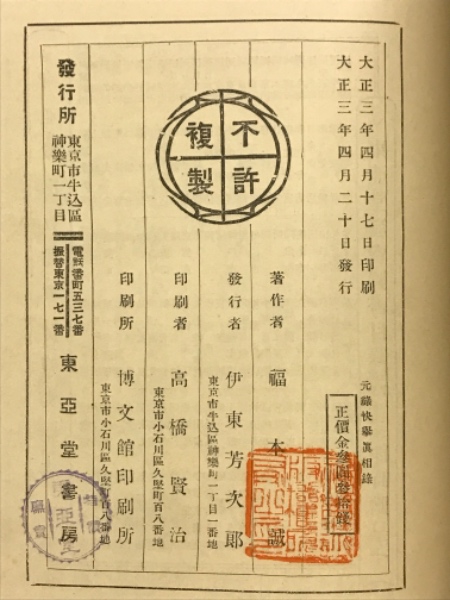 大正三年四月十七日印刷
大正三年四月二十日發行
元祿快擧眞相錄
正價金參圓參拾錢
不許
複製
著作者 福本誠
發行者 伊東芳次郎
東京市牛込區神樂町一丁目一番地
印刷者 高橋賢治
東京市小石川區久堅町百八番地
印刷所 博文館印刷所
東京市小石川區久堅町百八番地
發行所
東京市牛込區
神樂町一丁目
電話番町五三七番
振替東京一七一番
東亞堂書房